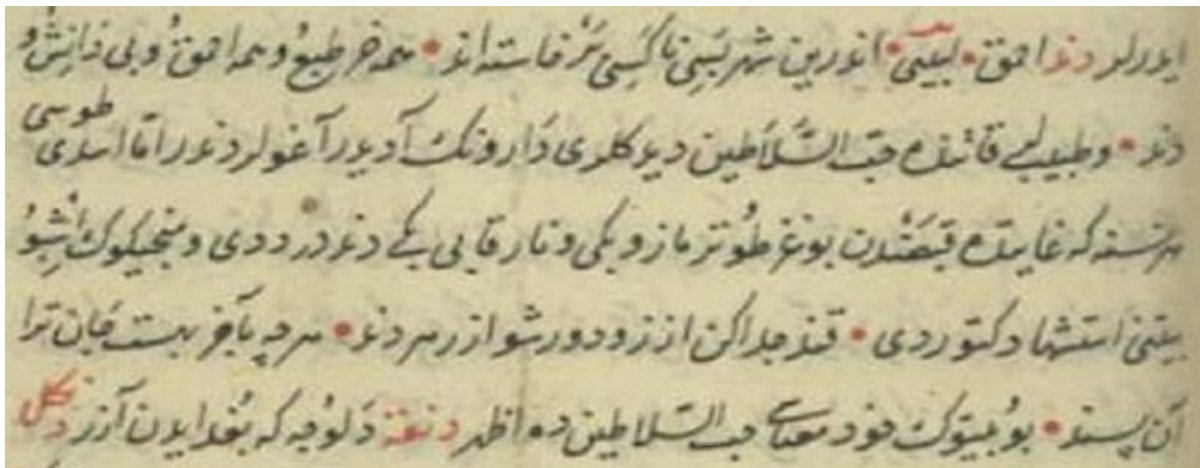 ایدرلر دند احمق • لبیبی • اندرین شهر بسی ناکسی برخاسته‌اند • همه خر طبع و همه احمق و بی دانش و
دند • و طبیبلر قاتنده حب السلاطین دیدکلری دارونك آدیدر آغولر دندر اما اسدی طوسی
هر نسنه که غایتده قبضدن بوغز طوتر ماز و یکی و نار قابی بکی دند در دیدی و منجیكوك اشبو
بیتنی استشهاد کتوردی • قند جدا کن از زو دور شو از زهر دند • هر چه بآخر بهست جان ترا
آن پسند • بو بیتوك خود معناسی حب السلاطین ده اظهر دنقه دلوجه که بغدایدن آزر دنكل